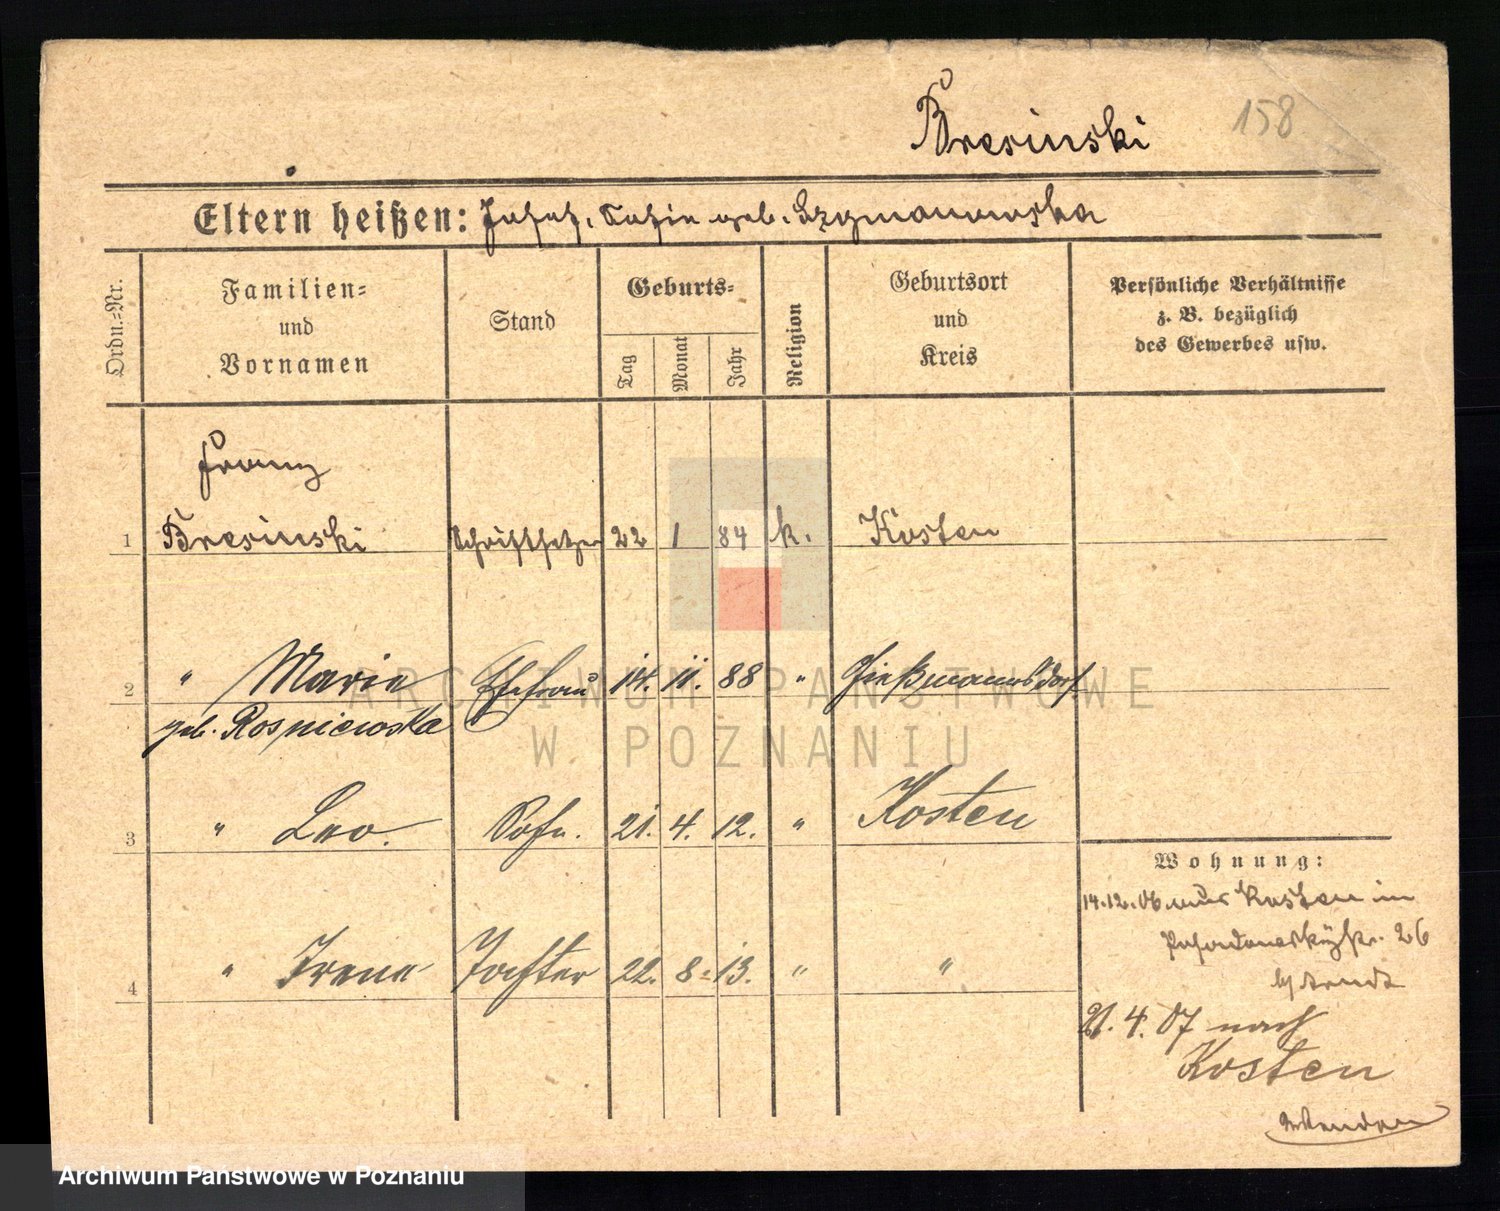 Bresinski
158
Eltern heißen: Josef, Sofie geb. Szymanowska
Ordn.-Nr.
Familien- und Vornamen
Stand
Geburts-
Tag
Monat
Jahr
Religion
Geburtsort und Kreis
Persönliche Verhältnisse z. B. bezüglich des Gewerbes usw.
Franz
1 Bresinski Schriftsetzer 22 1 84 k. Kosten
2 " Marie Ehefrau 14. 11. 88 " Gießmannsdorf
geb. Rosniewska
3 " Leo. Sohn. 21. 4. 12. " Kosten
4 " Irene Tochter 22. 8. 13. " "
Wohnung:
14.12.06 aus Kosten in
26
b/ Arndt
21. 4. 07 nach
Kosten
ARCHIWUM PAŃSTWOWE
W POZNANIU
Archiwum Państwowe w Poznaniu